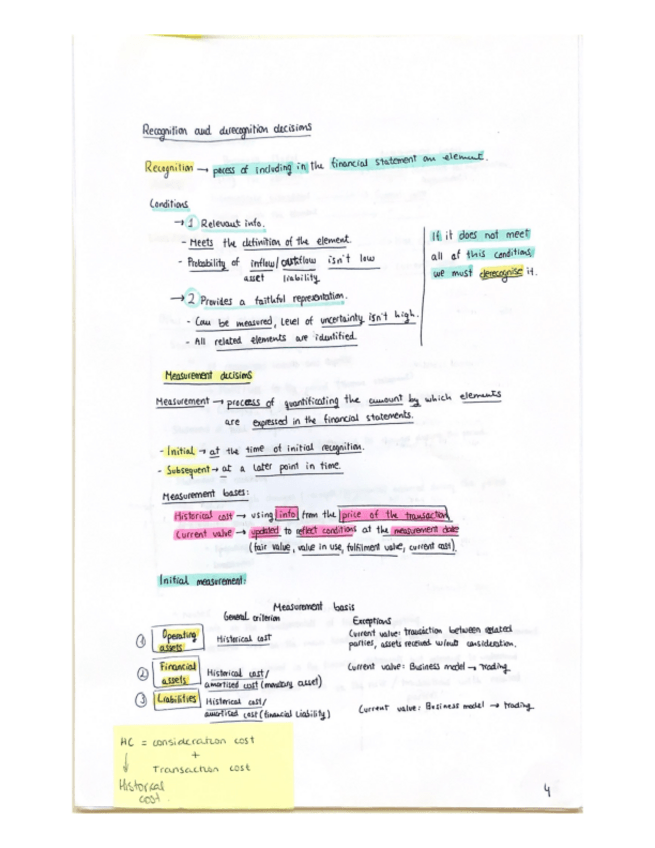 Recognition and derecognition decisions
Recognition → pocess of including in the financial statement an element.
Conditions
→ 1 Relevant info.
- Meets the definition of the element.
- Probability of inflow/outflow isn't low
asset liability.
→ 2 Provides a faithful representation.
- Can be measured, level of uncertainty isn't high.
- All related elements are identified.
If it does not meet
all of this conditions,
we must derecognise it.
Measurement decisions
Measurement → process of quantificating the amount by which elements
are expressed in the financial statements.
- Initial → at the time of initial recognition.
- Subsequent → at a later point in time.
Measurement bases:
Historical cost → using info from the price of the transaction
Current value → updated to reflect conditions at the measurement date
(fair value, value in use, fulfilment value, current cost).
Initial measurement:
Measurement basis
General criterion Exceptions
1 Operating assets Historical cost Current value: transaction between related
parties, assets received w/out consideration.
2 Financial assets Historical cost/ Current value: Business model → trading
amortised cost (monetary asset)
3 Liabilities Historical cost/ Current value: Business model → trading
amortised cost (financial liability)
HC = consideration cost
+
↓ Transaction cost
Historical
cost.
4